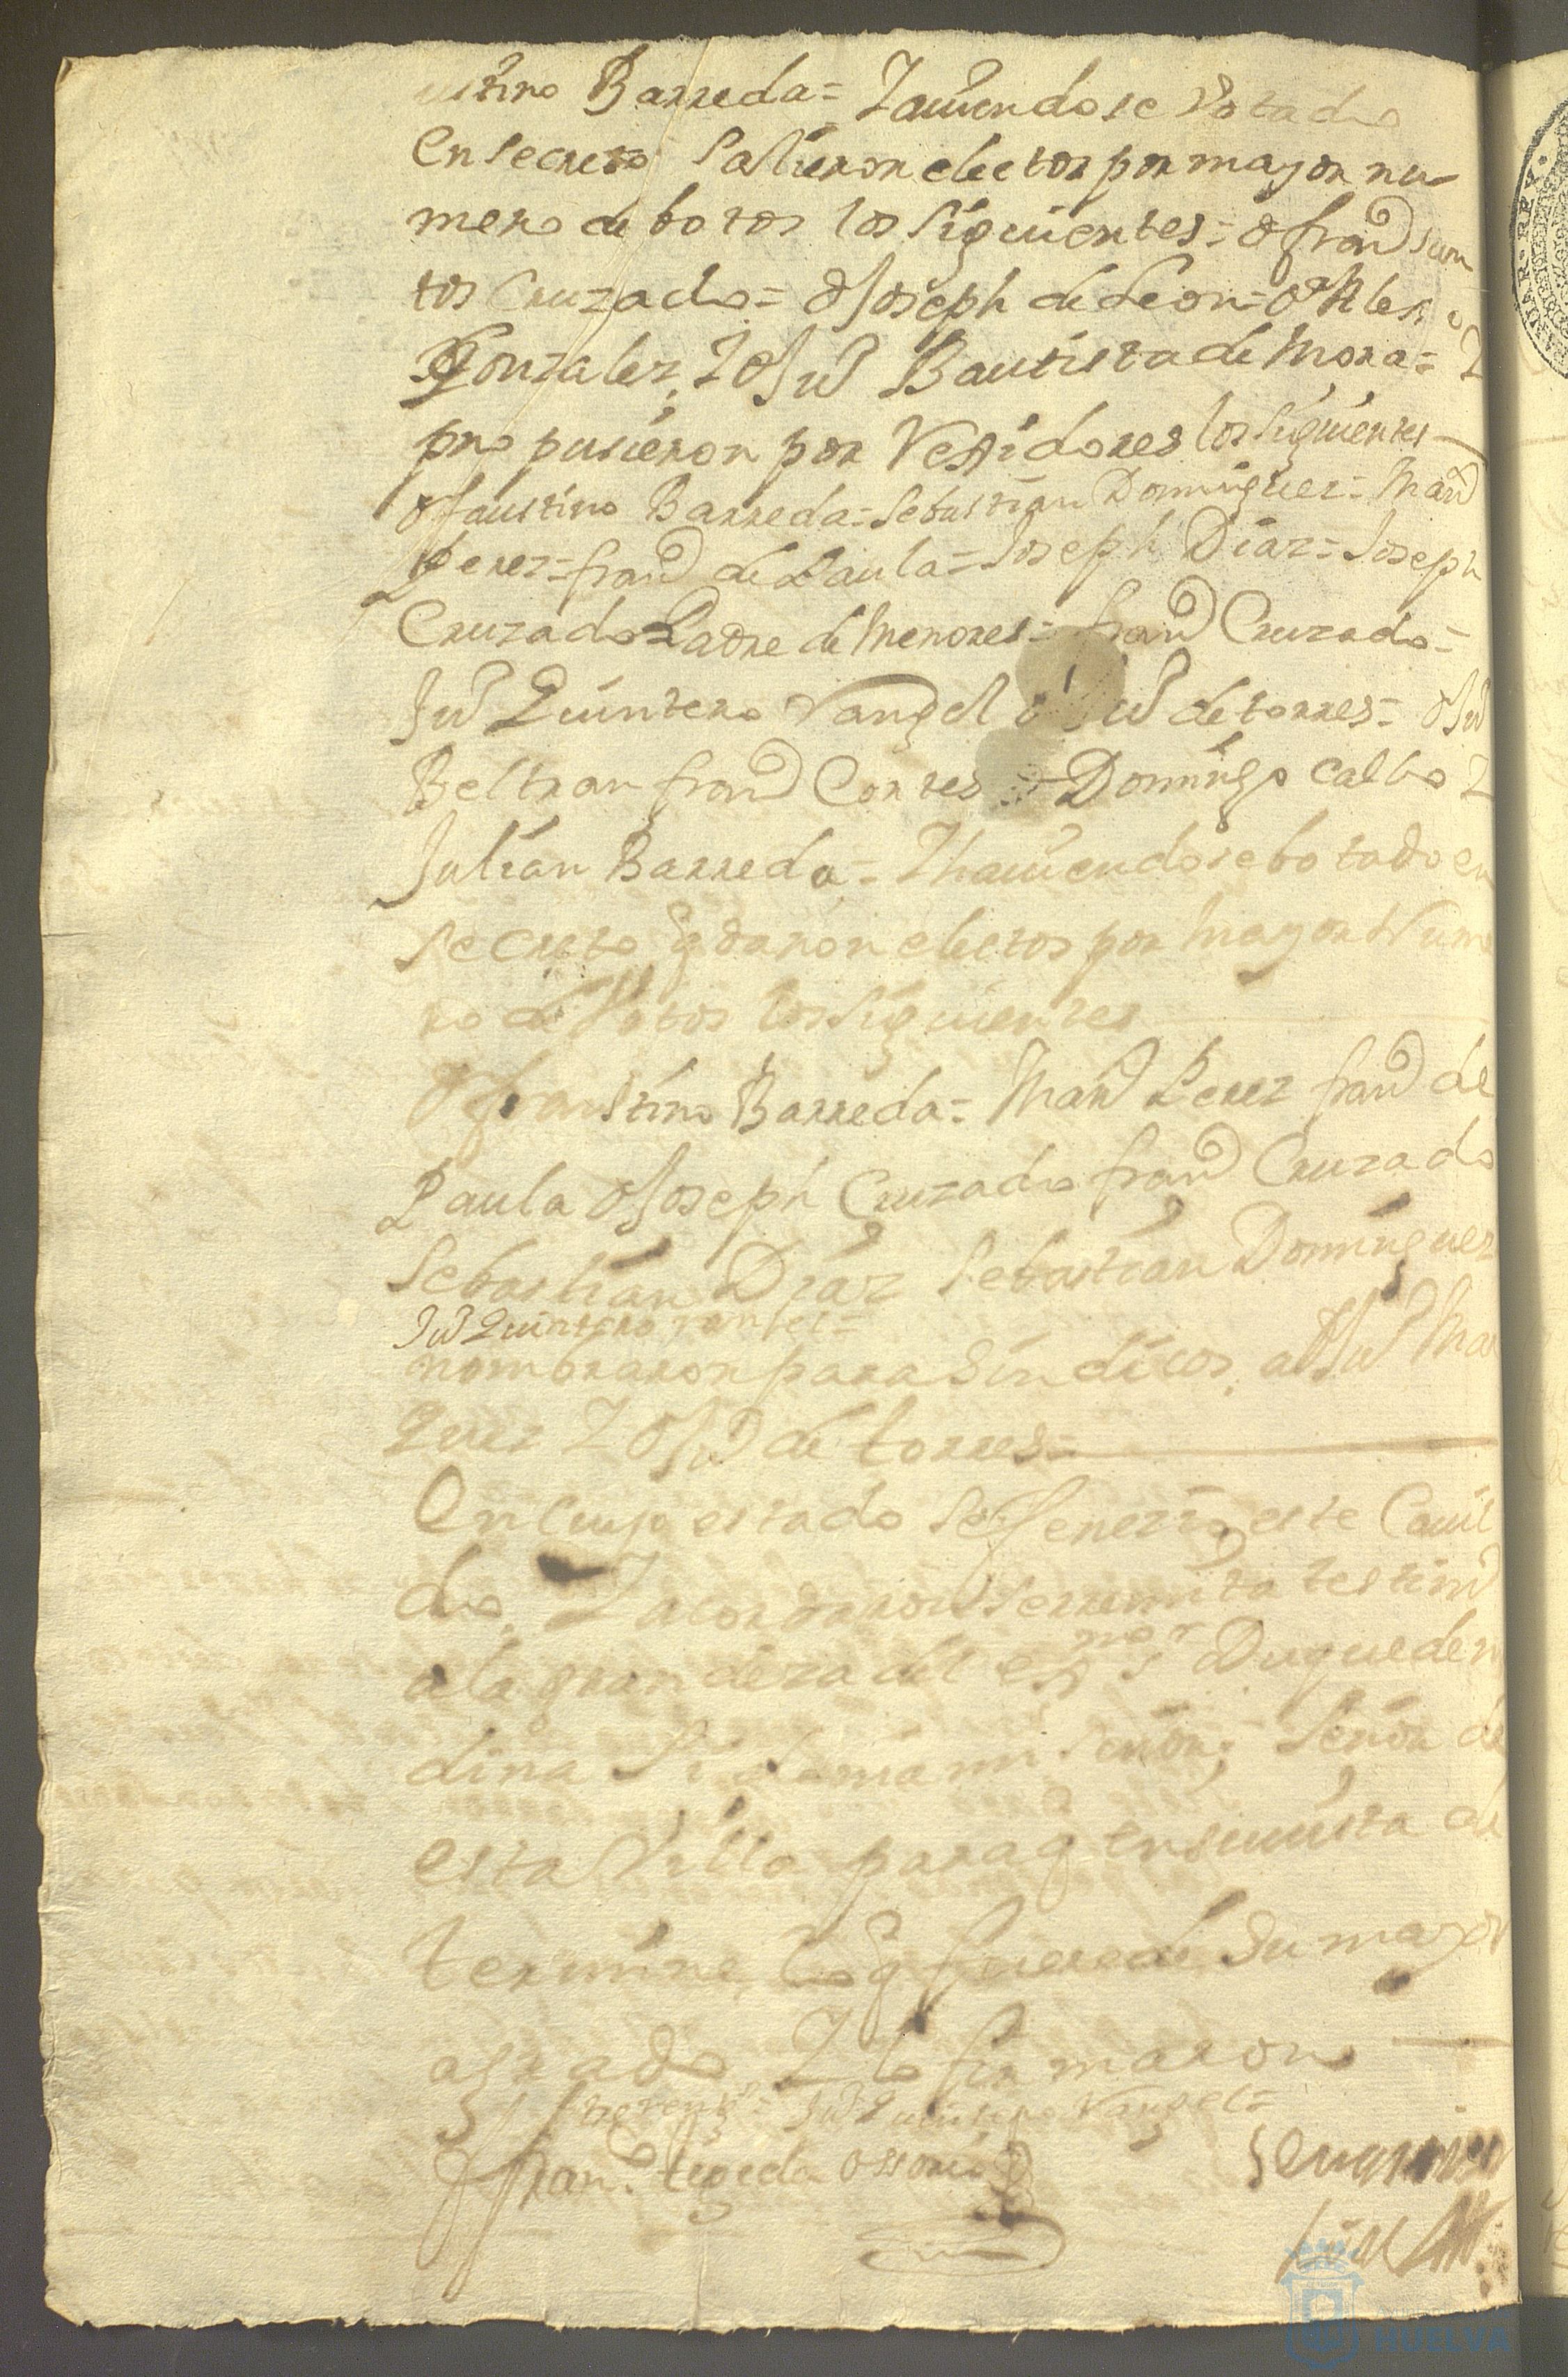 ustino Barreda = Y auiendose Votado
En secreto Salieron electos por mayor nu-
mero de botos los siguientes = Dn franco San
tos Cruzado = Dn Joseph de Leon = Dn Alex
Gonzalez, Y Dn Juo Bautista de Mora = Y
propusieron por Rexidores los siguientes
Dn faustino Barreda = Sebastian Dominguez = Manl
Perez = franco de Paula = Joseph Diaz = Joseph
Cruzado Padre de Menores = franco Cruzado =
Juo Quintero Vangel Juo de torres = Dn Juo
Beltran franco Cortes = Domingo Calbo Y
Julian Barreda = Y hauiendose botado en
secreto qdaron electos por Mayor Nume
ro de Votos los siguientes
Dn faustino Barreda = Manl Perez franco de
Paula Dn Joseph Cruzado franco Cruzado
Sebastian Diaz Sebastian Dominguez
Juo Quintero Vangel =
nombraron para Sindicos, a Dn Juo Mar
quez Y Dn Juo de torres =
En Cuyo estado se fenezio este Cauil
do, Y acordaron se remita testimo
a la grandeza del exmo sr Duque de
dina Sidonia mi señor; Señor de
esta Villa para q en su uista de
termine lo q fuere de Su mayor
agrado Y lo firmaron
Juo Quintero Vangel =
franco tegeda ossorio